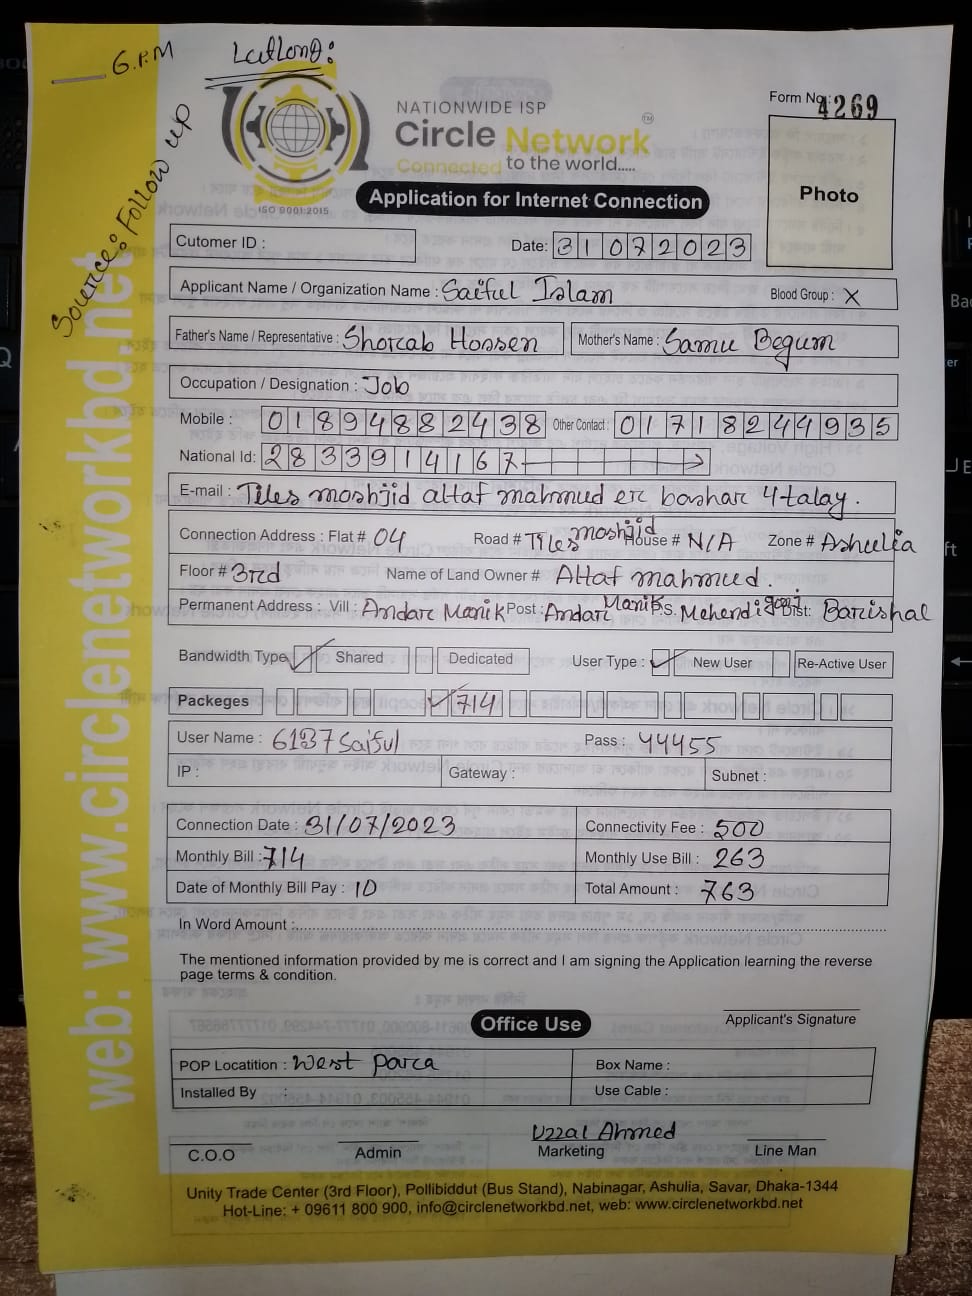 6.P.M
LatLong:
Source: Follow up
NATIONWIDE ISP
Circle Network TM
Connected to the world.....
ISO 9001:2015
Form No.: 4269
Photo
Application for Internet Connection
Cutomer ID :
Date: 31072023
Applicant Name / Organization Name : Saiful Islam
Blood Group : X
Father's Name / Representative : Shorab Hossen
Mother's Name : Samu Begum
Occupation / Designation : Job
Mobile : 01894882438 Other Contact : 01718244935
National Id: 2833914167
E-mail : Tiles moshjid altaf mahmud er bashar 4 talay.
Connection Address : Flat # 04 Road # Tiles moshjid House # N/A Zone # Ashulia
Floor # 3rd Name of Land Owner # Altaf mahmud.
Permanent Address : Vill : Andar Manik Post : Andar Manik P.S. Mehendigonj Dist: Barishal
Bandwidth Type ✓ Shared Dedicated User Type : ✓ New User Re-Active User
Packeges ✓ 714
User Name : 6137Saiful Pass : 44455
IP : Gateway : Subnet :
Connection Date : 31/07/2023 Connectivity Fee : 500
Monthly Bill : 714 Monthly Use Bill : 263
Date of Monthly Bill Pay : 10 Total Amount : 763
In Word Amount :
The mentioned information provided by me is correct and I am signing the Application learning the reverse
page terms & condition.
Applicant's Signature
Office Use
POP Locatition : West Para Box Name :
Installed By : Use Cable :
Uzzal Ahmed
C.O.O Admin Marketing Line Man
Unity Trade Center (3rd Floor), Pollibiddut (Bus Stand), Nabinagar, Ashulia, Savar, Dhaka-1344
Hot-Line: + 09611 800 900, info@circlenetworkbd.net, web: www.circlenetworkbd.net
web: www.circlenetworkbd.net